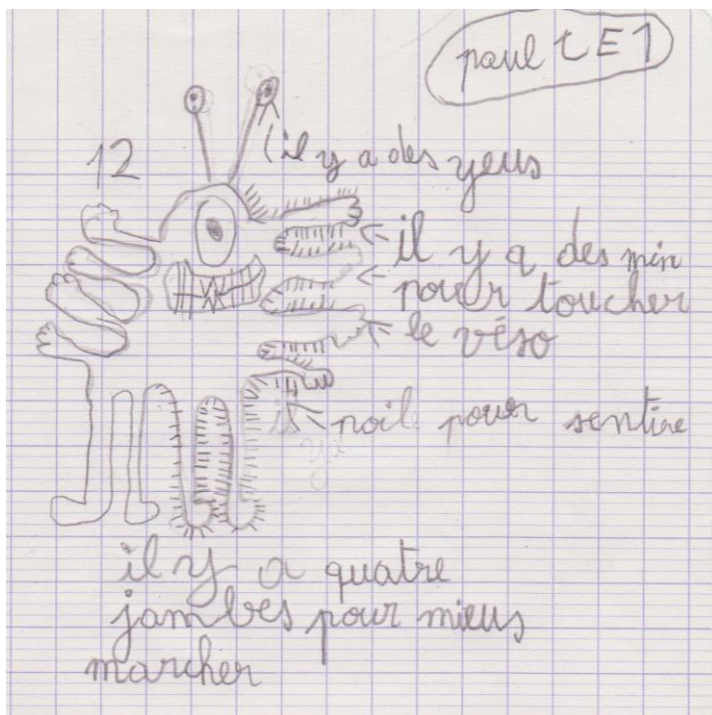 paul CE1
12
il y a des yeus
il y a des min
pour toucher
le véso
poil pour sentire
il y a quatre
jambes pour mieus
marcher